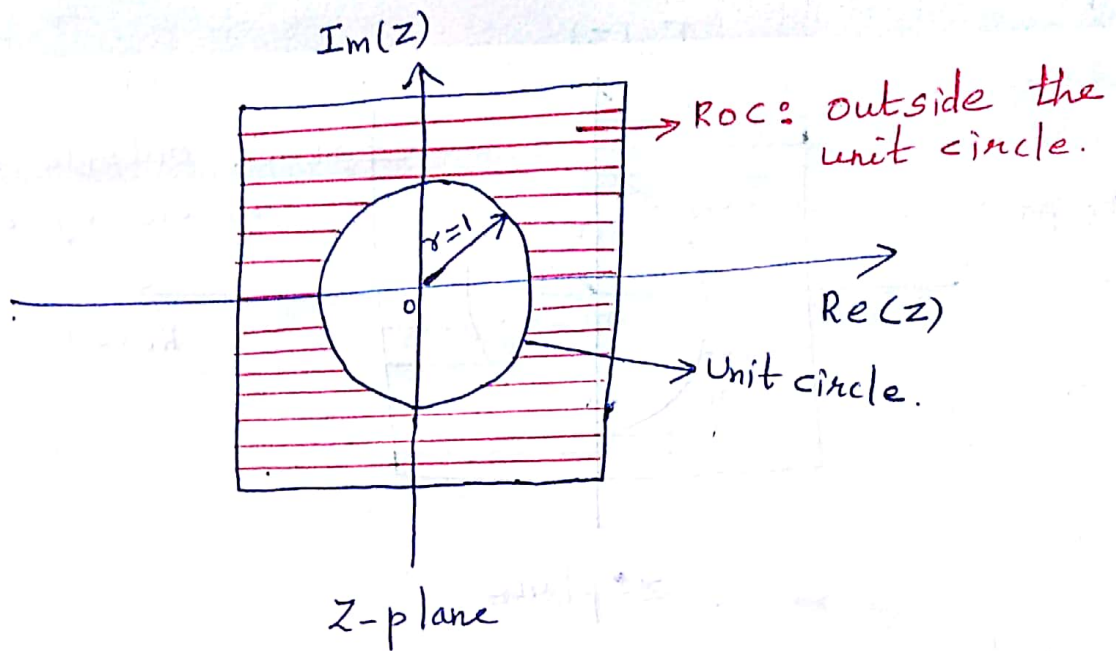 Im(Z)
ROC: outside the
unit circle.
r=1
0
Re(Z)
Unit circle.
Z-plane